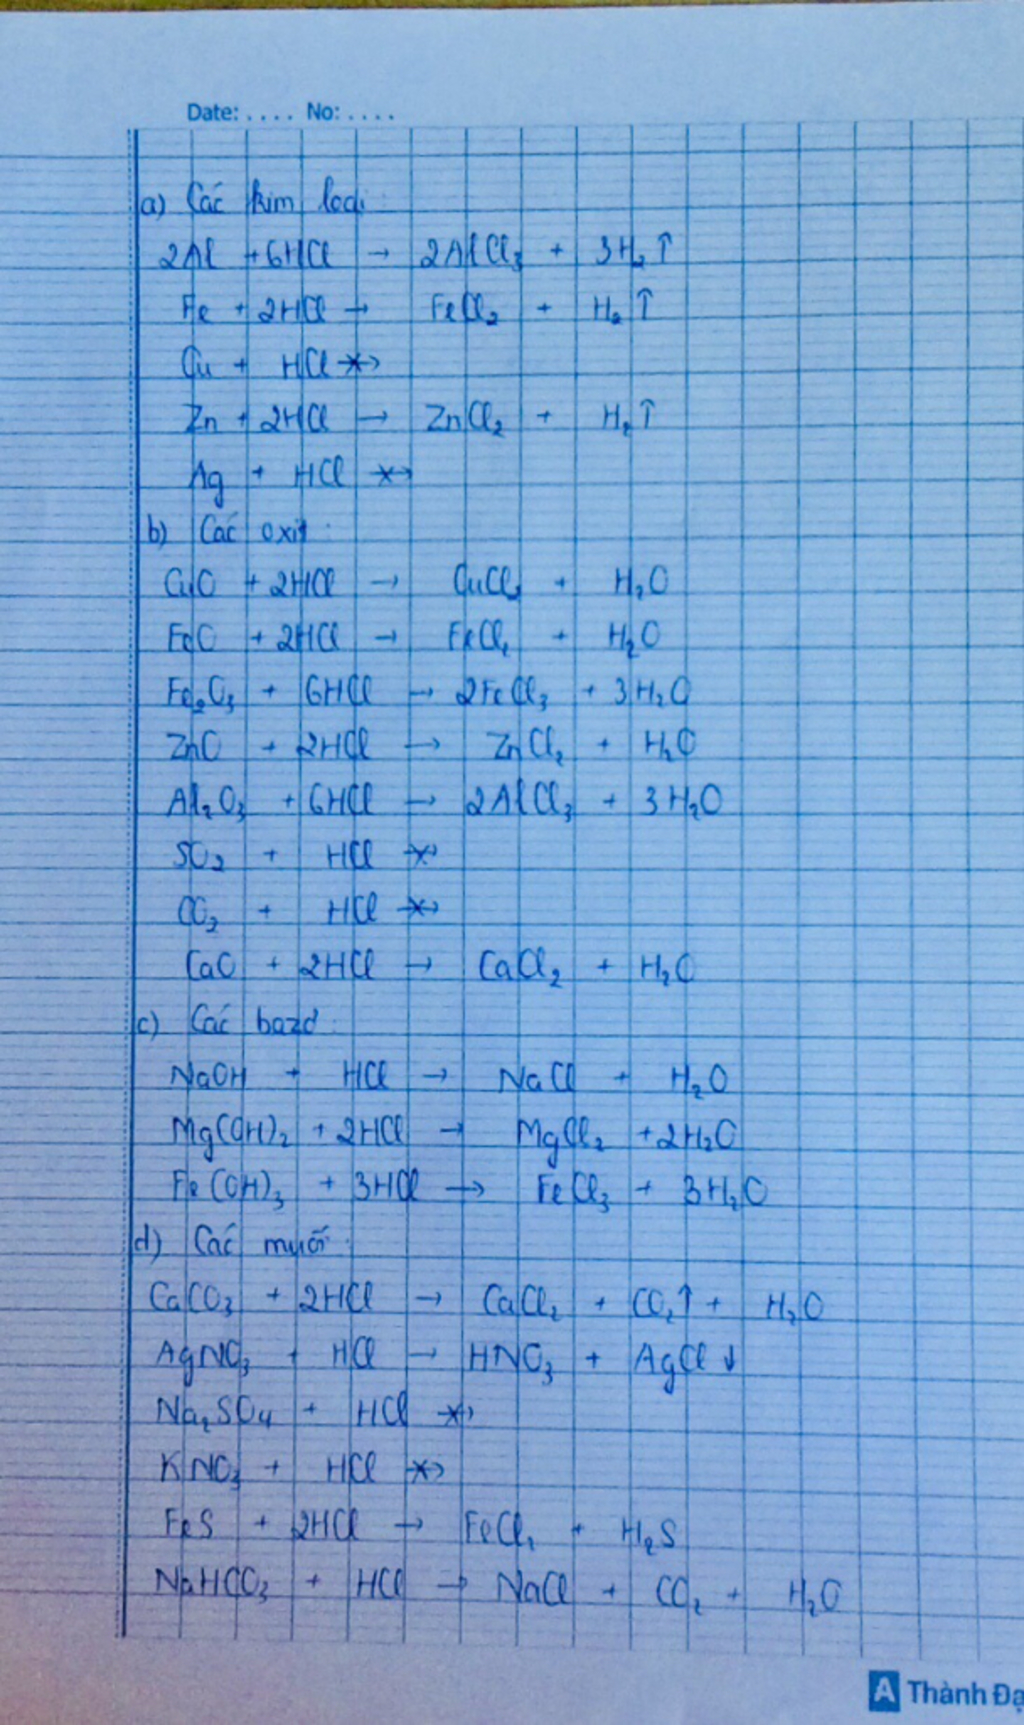 Date: .... No: ....
a) Các kim loại
2Al + 6HCl → 2AlCl₃ + 3H₂↑
Fe + 2HCl → FeCl₂ + H₂↑
Cu + HCl -x->
Zn + 2HCl → ZnCl₂ + H₂↑
Ag + HCl -x->
b) Các oxit:
CuO + 2HCl → CuCl₂ + H₂O
FeO + 2HCl → FeCl₂ + H₂O
Fe₂O₃ + 6HCl → 2FeCl₃ + 3H₂O
ZnO + 2HCl → ZnCl₂ + H₂O
Al₂O₃ + 6HCl → 2AlCl₃ + 3H₂O
SO₂ + HCl -x->
CO₂ + HCl -x->
CaO + 2HCl → CaCl₂ + H₂O
c) Các bazơ:
NaOH + HCl → NaCl + H₂O
Mg(OH)₂ + 2HCl → MgCl₂ + 2H₂O
Fe(OH)₃ + 3HCl → FeCl₃ + 3H₂O
d) Các muối:
CaCO₃ + 2HCl → CaCl₂ + CO₂↑ + H₂O
AgNO₃ + HCl → HNO₃ + AgCl↓
Na₂SO₄ + HCl -x->
KNO₃ + HCl -x->
FeS + 2HCl → FeCl₂ + H₂S
NaHCO₃ + HCl → NaCl + CO₂ + H₂O
A Thành Đạ